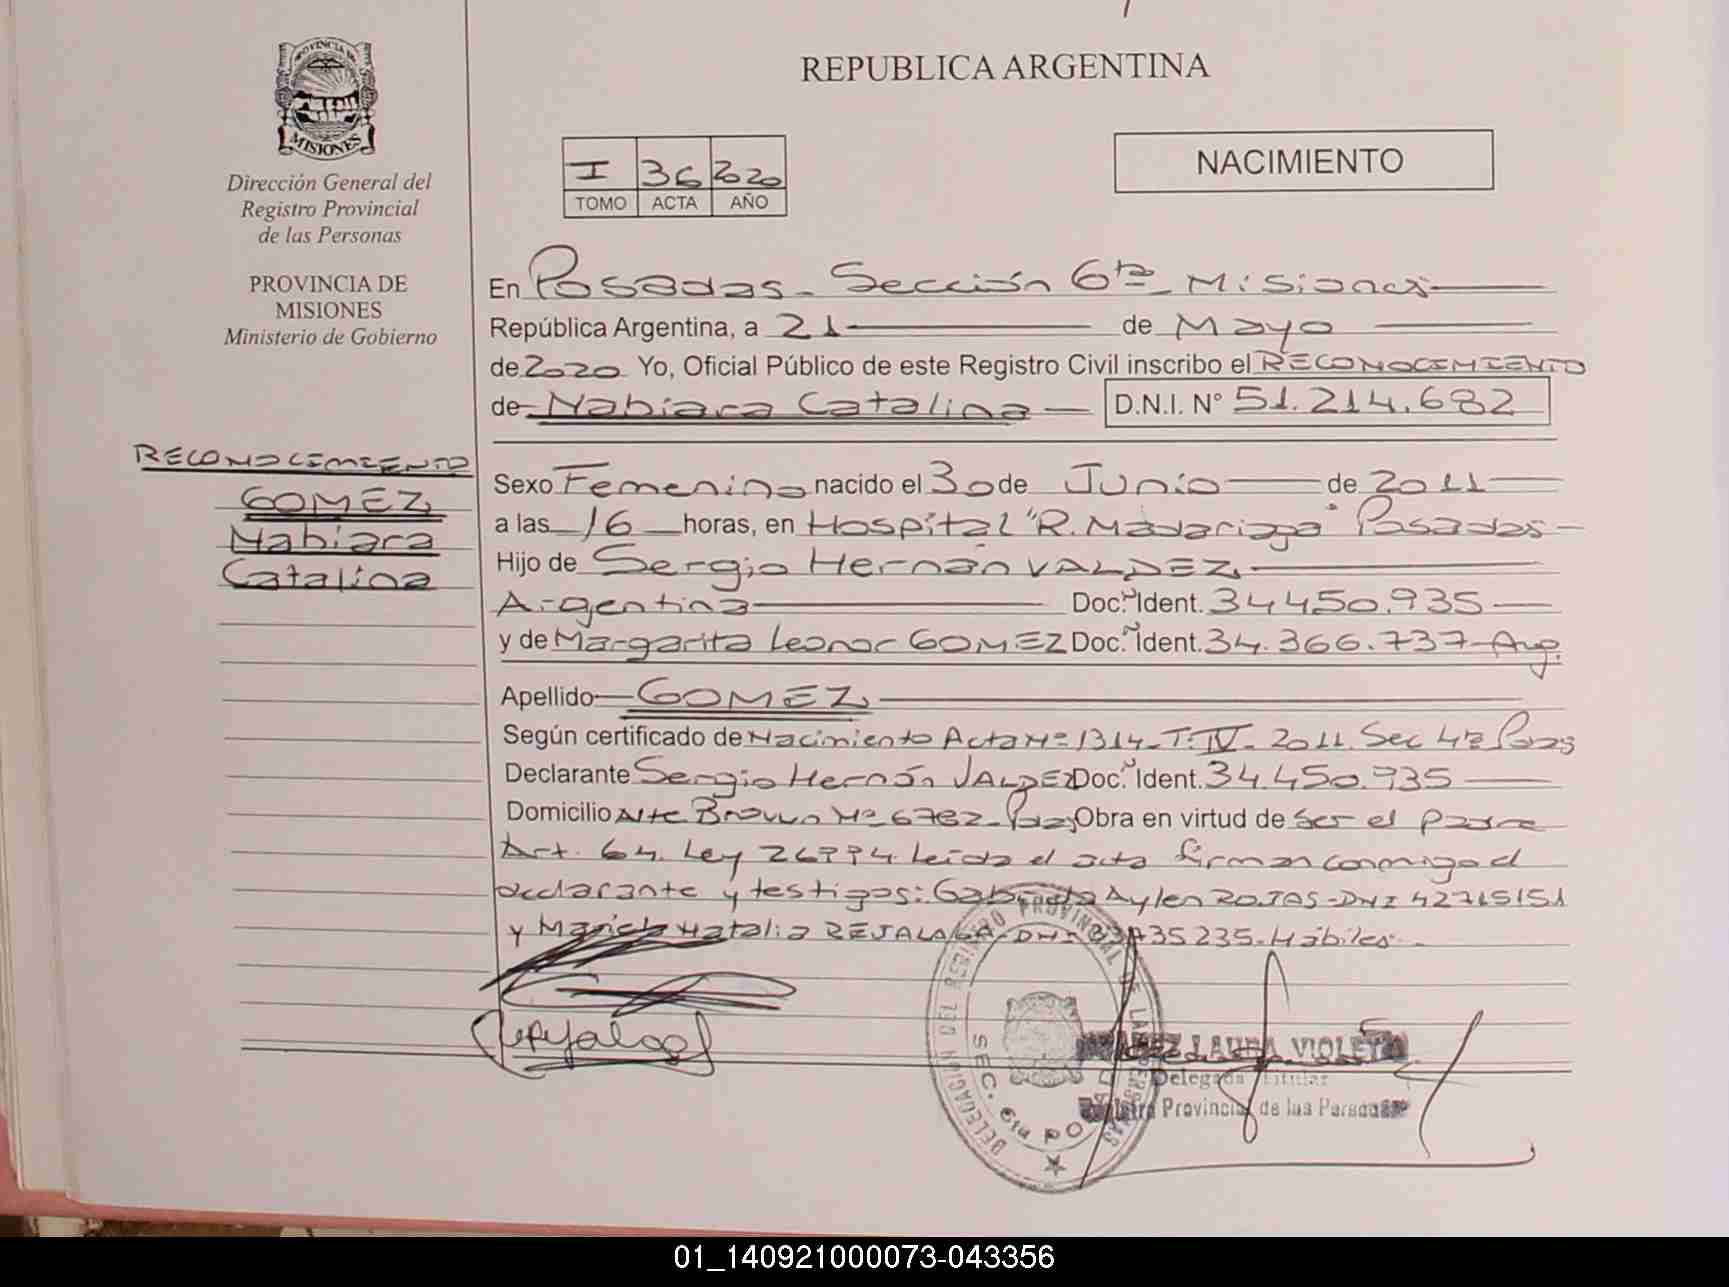 PROVINCIA DE
MISIONES
Dirección General del
Registro Provincial
de las Personas
PROVINCIA DE
MISIONES
Ministerio de Gobierno
RECONOCIMIENTO
GOMEZ
Nabiara
Catalina
REPUBLICA ARGENTINA
I 36 2020
TOMO ACTA AÑO
NACIMIENTO
En Posadas - Sección 6ta - Misiones
República Argentina, a 21 de Mayo
de 2020 Yo, Oficial Público de este Registro Civil inscribo el RECONOCIMIENTO
de Nabiara Catalina D.N.I. N° 51.214.682
Sexo Femenino nacido el 30 de Junio de 2011
a las 16 horas, en Hospital "R. Madariaga" Posadas
Hijo de Sergio Hernán VALDEZ
Argentina Doc. Ident. 34450.935
y de Margarita Leonor GOMEZ Doc. Ident. 34.366.737 Arg.
Apellido GOMEZ
Según certificado de Nacimiento Acta Nº 1314 - T: IV - 2011. Sec 4ta Pdas
Declarante Sergio Hernán VALDEZ Doc. Ident. 34.450.935
Domicilio Alte Brown Nº 6782 - Pdas, Obra en virtud de ser el padre
Art. 64. Ley 26994. Leída el acta firman conmigo el
declarante y testigos: Gabriela Aylen ROJAS - DNI 42715151
y Natalia REJALAGA - DNI 35235. Hábiles.
DELEGACIÓN DEL REGISTRO PROVINCIAL DE LAS PERSONAS
SEC. 6ta
LAURA VIOLETA
Delegada Titular
Registro Provincial de las Personas
01_140921000073-043356